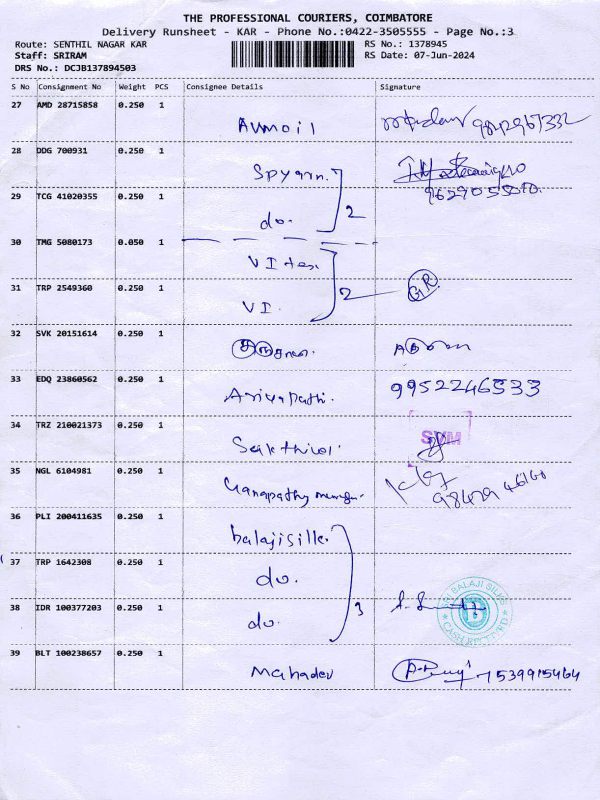 THE PROFESSIONAL COURIERS, COIMBATORE
Delivery Runsheet - KAR - Phone No.:0422-3505555 - Page No.:3
Route: SENTHIL NAGAR KAR RS No.: 1378945
Staff: SRIRAM RS Date: 07-Jun-2024
DRS No.: DCJB137894503
S No Consignment No Weight PCS Consignee Details Signature
27 AMD 28715858 0.250 1
Avmoil 9842967332
28 DDG 700931 0.250 1
Spyarn.
29 TCG 41020355 0.250 1
do. 2
30 TMG 5080173 0.050 1
VI
31 TRP 2549360 0.250 1
VI. 2 GR
32 SVK 20151614 0.250 1
33 EDQ 23860562 0.250 1 9952246533
Ariyapathi.
34 TRZ 210021373 0.250 1 SVM
Sakthivel.
35 NGL 6104981 0.250 1
Ganapathy
36 PLI 200411635 0.250 1
balajisilk.
37 TRP 1642308 0.250 1
do.
38 IDR 100377203 0.250 1 3
do.
SRI BALAJI SILKS
CASH RECEIVED
39 BLT 100238657 0.250 1
Mahadev 7539915464